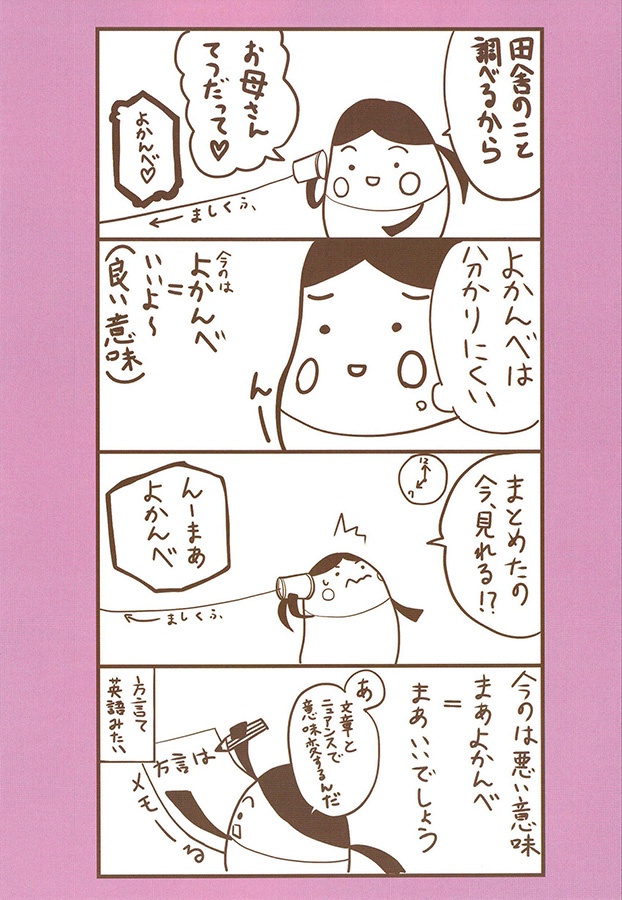 田舎のこと
調べるから
お母さん
てつだって♡
よかんべ♡
← ましくふ、
よかんべは
分かりにくい
ん―
今のは
よかんべ
=
いいよ～
(良い意味)
まとめたの
今、見れる!?
12
7
んーまぁ
よかんべ
← ましくふ、
今のは悪い意味
まぁよかんべ
=
まぁいいでしょう
あ
文章と
ニュアンスで
意味変するんだ
方言は
メモーる
方言て
英語みたい